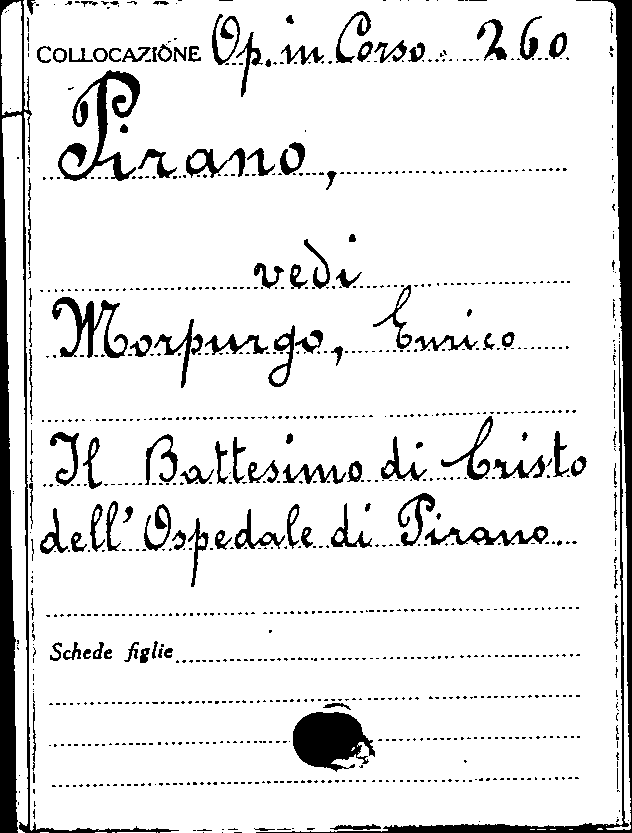 COLLOCAZIONE Op. in Corso. 260
Pirano,
vedi
Morpurgo, Enrico
Il Battesimo di Cristo
dell'Ospedale di Pirano.
Schede figlie